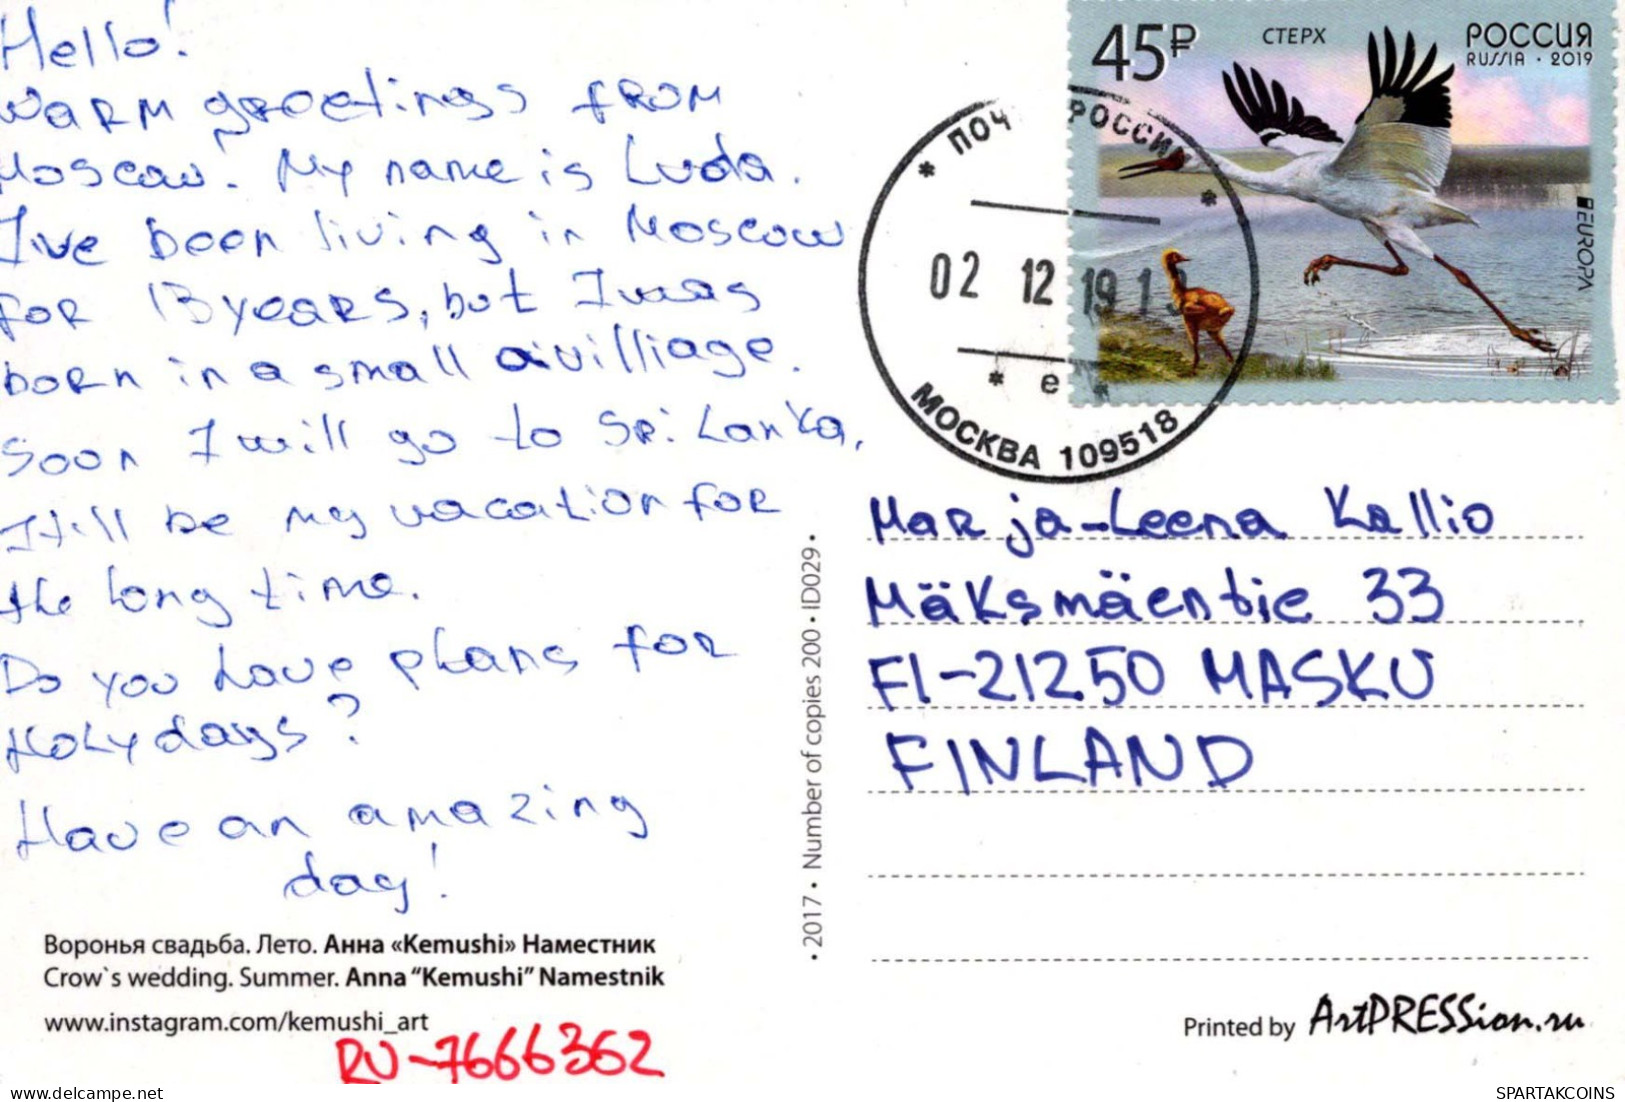 Hello!
Warm greetings from
Moscow. My name is Luda.
I've been living in Moscow
for 13 years, but I was
born in a small a villiage.
Soon I will go to Sri Lanka,
It'll be my vacation for
the long time.
Do you have plans for
Holydays?
Have an amazing
day!
Воронья свадьба. Лето. Анна «Kemushi» Наместник
Crow`s wedding. Summer. Anna “Kemushi” Namestnik
www.instagram.com/kemushi_art
RU-7666362
• 2017 • Number of copies 200 • ID029 •
45₽
СТЕРХ
РОССИЯ
RUSSIA · 2019
EUROPA
* ПОЧ РОССИИ *
02 12 19 1
* е *
МОСКВА 109518
Marja-Leena Kallio
Mäksmäentie 33
FI-21250 MASKU
FINLAND
Printed by ArtPRESSion.ru
SPARTAKCOINS